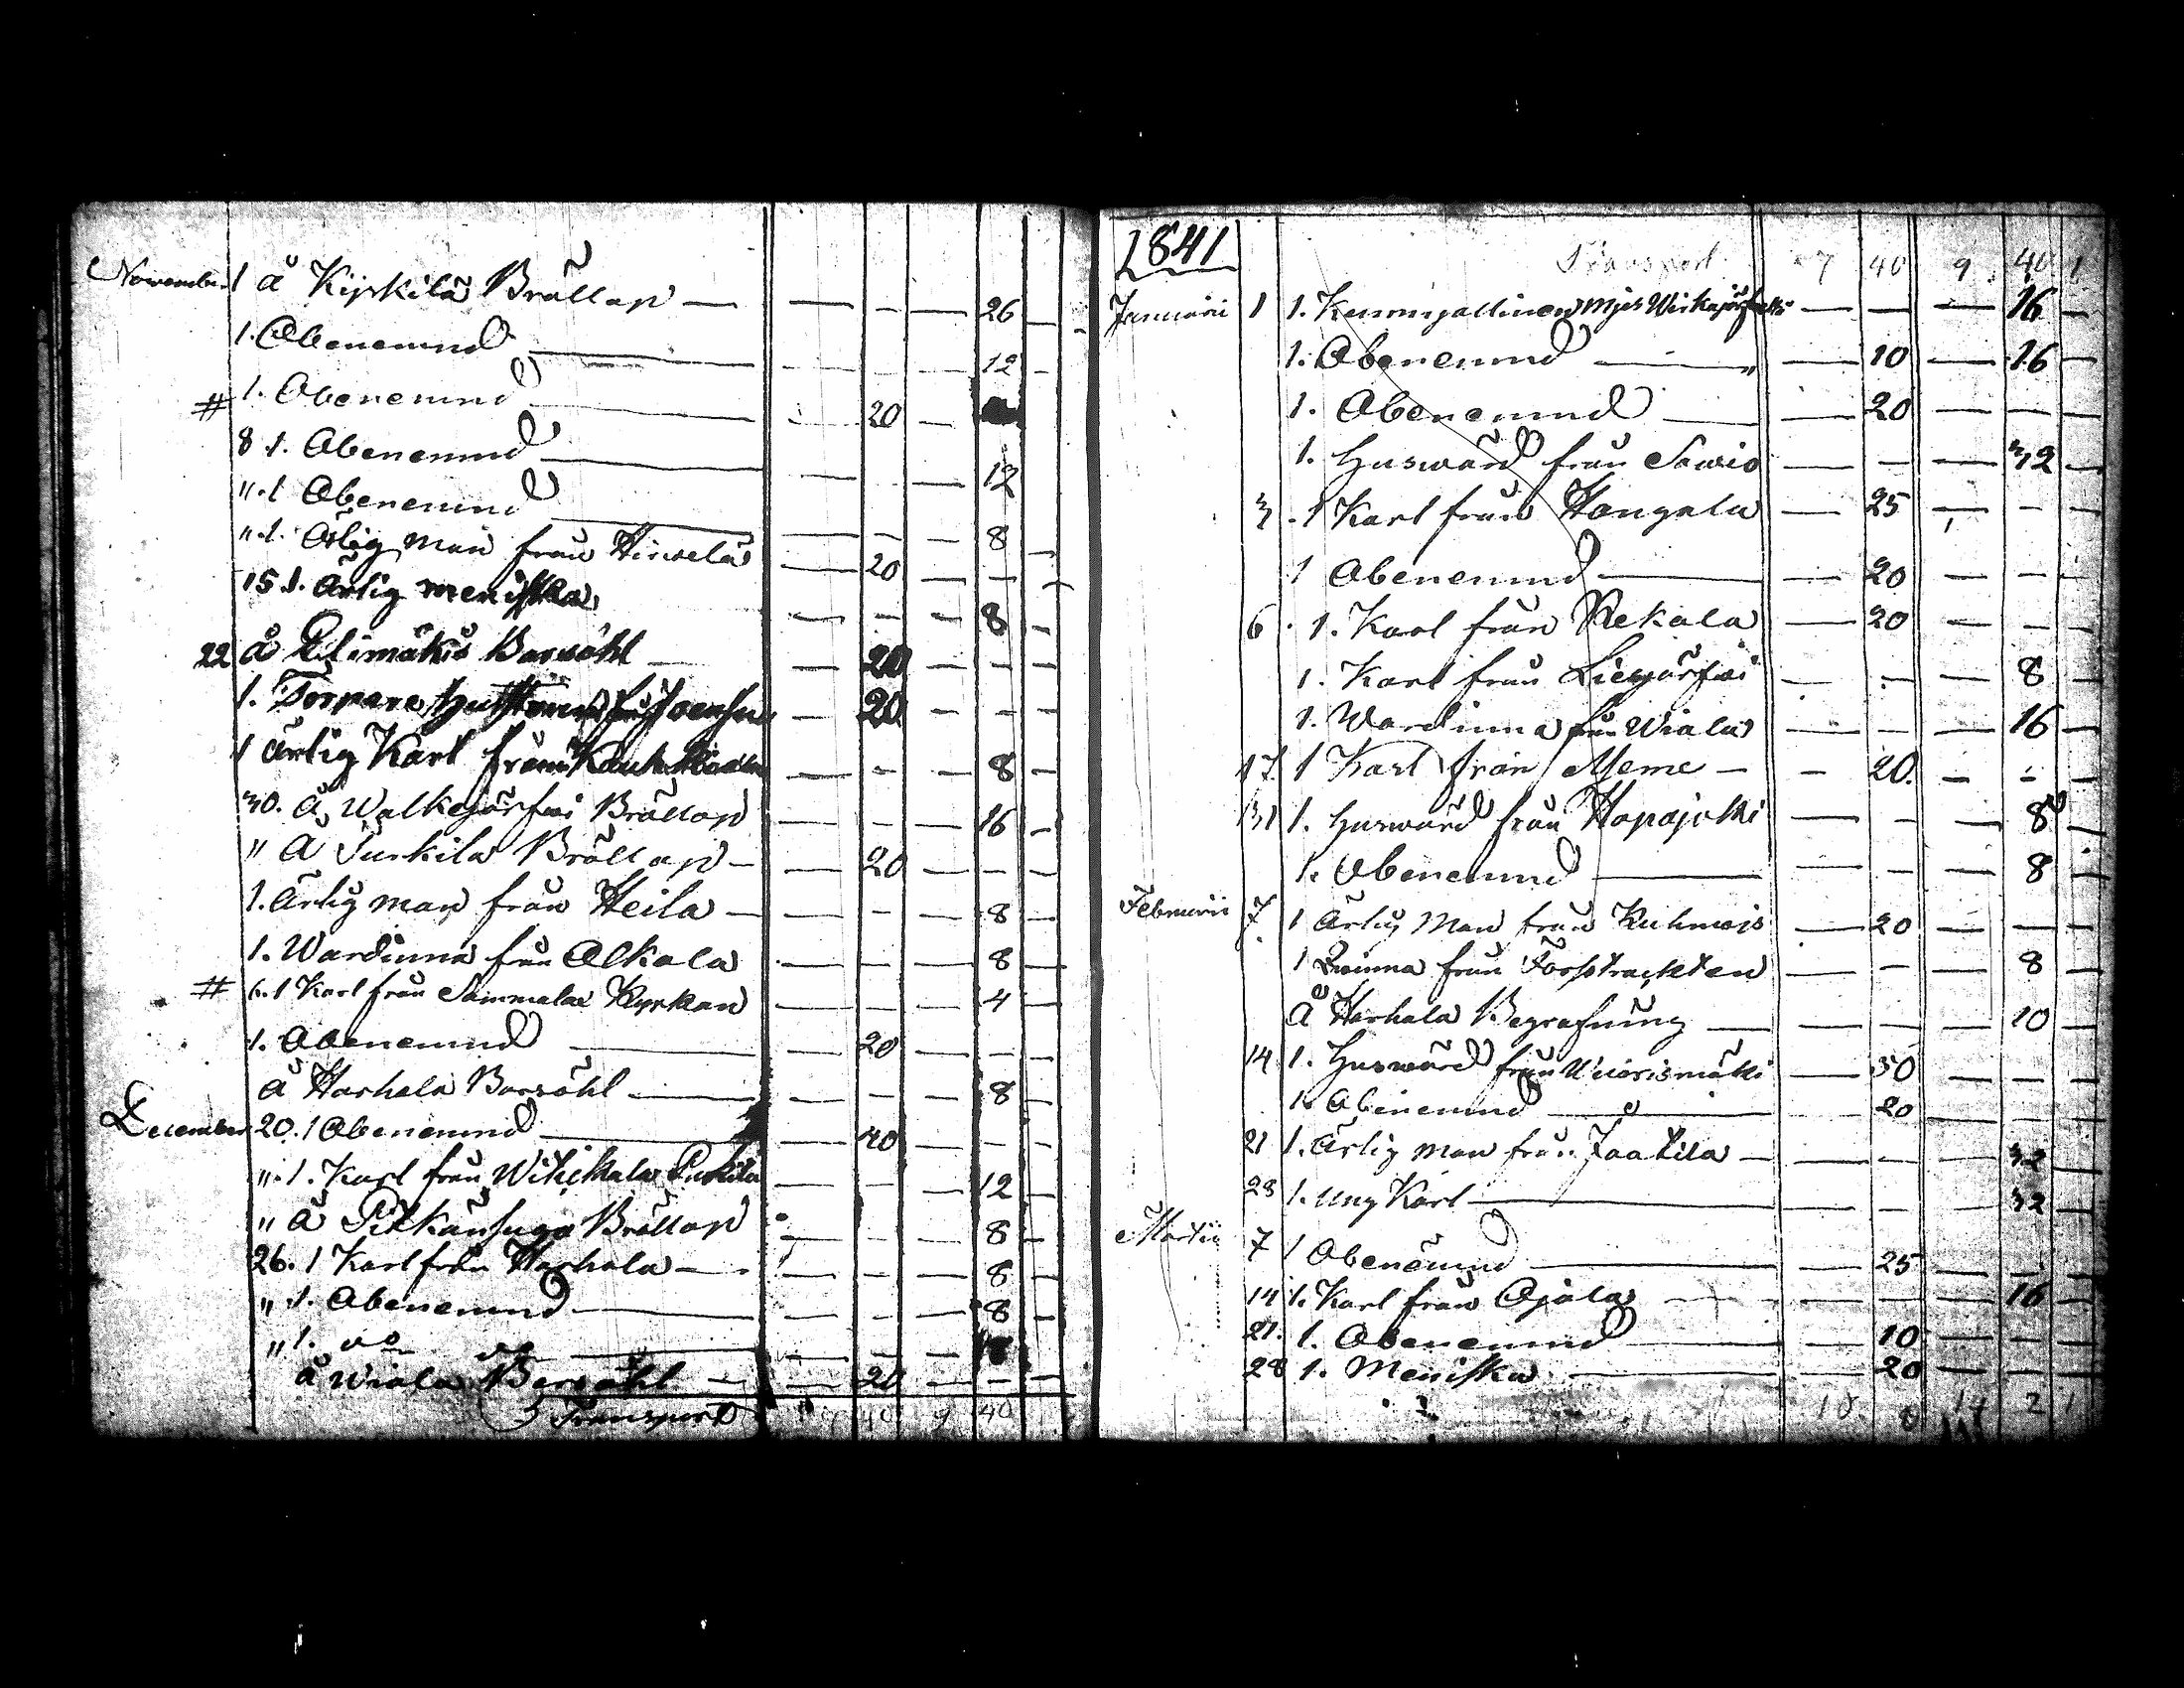 November 1 å Kipkilä Bröllop — — — — 26 —
1. Obenemnd — — — — 12 —
# 1. Obenemnd — — 20 —
8 1. Obenemnd — — — — 12
".1 Obenemnd — — — — 8
".1. Ärlig man från Hirvelä — 20 — — —
15 1. Ärlig meniska — — — 8 —
22 å Barsöhl — — 20 — — —
1. Torpare — 20 — — —
1 Ärlig Karl från — — — 8 —
30. Å Walkejärfwi Bröllop — — — 16 —
" Å Turkila Bröllop — — 20 — — —
1. Ärlig man från Heila — — — — 8 —
1. Wardinna från Alkala — — — 8 —
# 6.1 Karl från Sammalax Kyrkan — — — 4 —
1. Obenemnd — — 20 — — —
å Harhala Barsöhl — — — — 8 —
December 20.1 Obenemnd — — 40 — — —
".1. Karl från Purkila — — — 12 —
" Å Bröllop — — — 8 —
26.1 Karl från Harhala — — — — 8 —
".1. Obenemnd — — — — 8 —
"1. do do — — — —
å Wiala Barsöhl — — 20 — — —
Transport 7 40 9 40
1841
Transport 7 40 9 40 1
Januarii 1 1. — — — 16 —
1. Obenemnd — " — 10 — 16 —
1. Obenemnd — — 20 — — —
1. Huswärd från Sawio — — — 32 —
3 .1 Karl från Hangala — 25 — — —
1 Obenemnd — — 20 — — —
6 . 1. Karl från Rekala — 20 — — —
1. Karl från Liejärfwi — — — 8 —
1. Wardinna från Wiala — — — 16 —
17 1 Karl från Meme — — 20. — — —
31 1. Huswärd från Hapajoki — — — 8 —
1. Obenemnd — — — — 8 —
Februarii 7 1 Ärlig Man från Kuhmois — 20 — — —
1 Qwinna från — — — 8 —
Å Harhala Begrafning — — — — 10 —
14 1. Huswärd från Wuorismäki — 50 — — —
1. Obenemnd — — 20 — — —
21 1. Ärlig man från Jaatila — — — — 32 —
28 1. ung Karl — — — — 32 —
Martii 7 1 Obenemnd — — 25 — — —
14 1. Karl från Ojala — — — — 16 —
21. 1. Obenemnd — — 10 — — —
28 1. Meniska — — 20 — — —
10 0 14 2 1